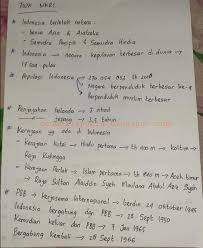 TWK NKRI
* Indonesia terletak antara :
- benua Asia & Australia
- Samudra Pasifik & Samudra Hindia
* Indonesia → negara kepulauan terbesar di dunia →
17 ribu pulau
* Populasi Indonesia
Negara berpenduduk terbesar ke-4
Berpenduduk muslim terbesar
* Penjajahan Belanda → 3 abad
Jepang → 3,5 tahun
* Kerajaan yg ada di Indonesia
Kerajaan Kutai → Hindu pertama → 400 m → kaltim →
Raja Kudungga
Kerajaan Perlak → Islam pertama → 840 m → Aceh timur
→ Raja Sultan Alaiddin Syah Maulana Abdul Aziz Syah
* PBB → kerjasama Internasional → berdiri 24 oktober 1945
Indonesia bergabung dgn PBB → 28 Sept 1950
Kemudian keluar dari PBB → 7 Jan 1965
Bergabung kembali → 28 Sept 1966